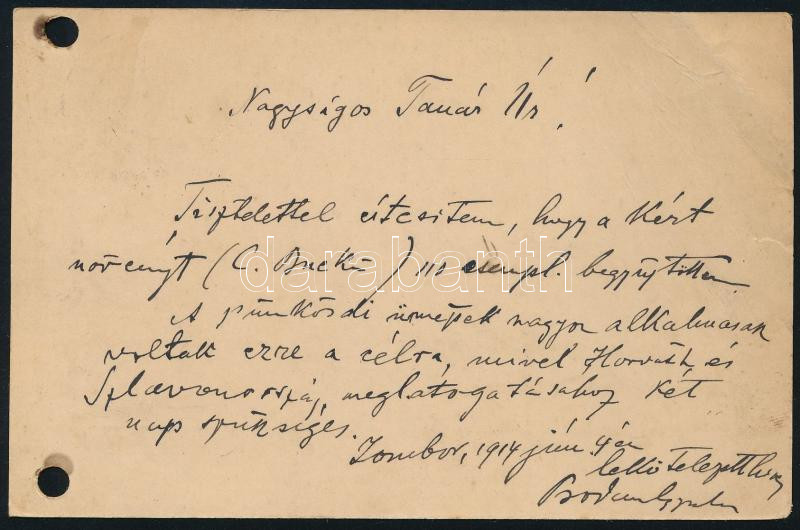 Nagyságos Tanár Úr!
Tisztelettel értesitem, hogy a kért
növényt (C. ) 110 exempl. begyüjtöttem.
A pünkösdi ünnepek nagyon alkalmasak
voltak erre a célra, mivel Horváth és
Szlavonország meglátogatásához két
nap szükséges.
Zombor, 1914 jún. 4én
darabanth